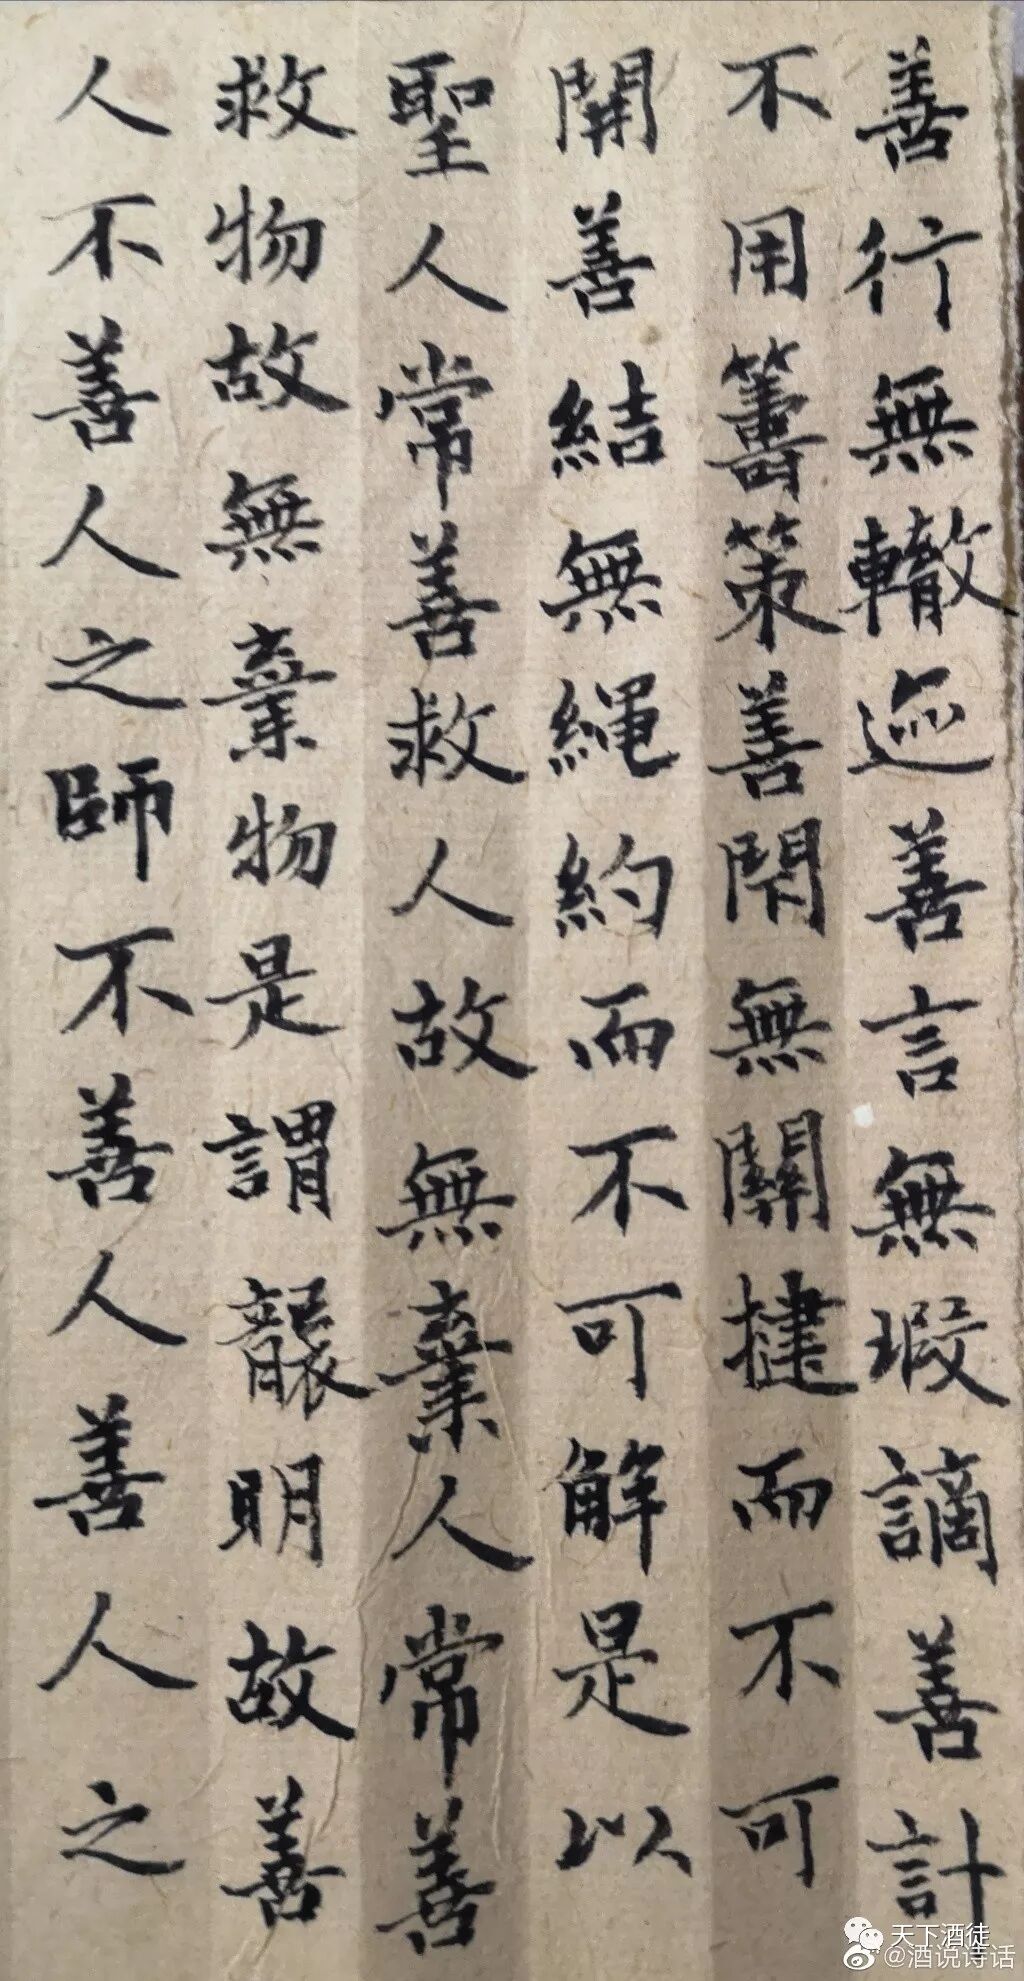 善行無轍迹善言無瑕謫善計
不用籌策善閇無關揵而不可
開善結無繩約而不可解是以
聖人常善救人故無棄人常善
救物故無棄物是謂襲明故善
人不善人之師不善人善人之
天下酒徒
@酒说诗话